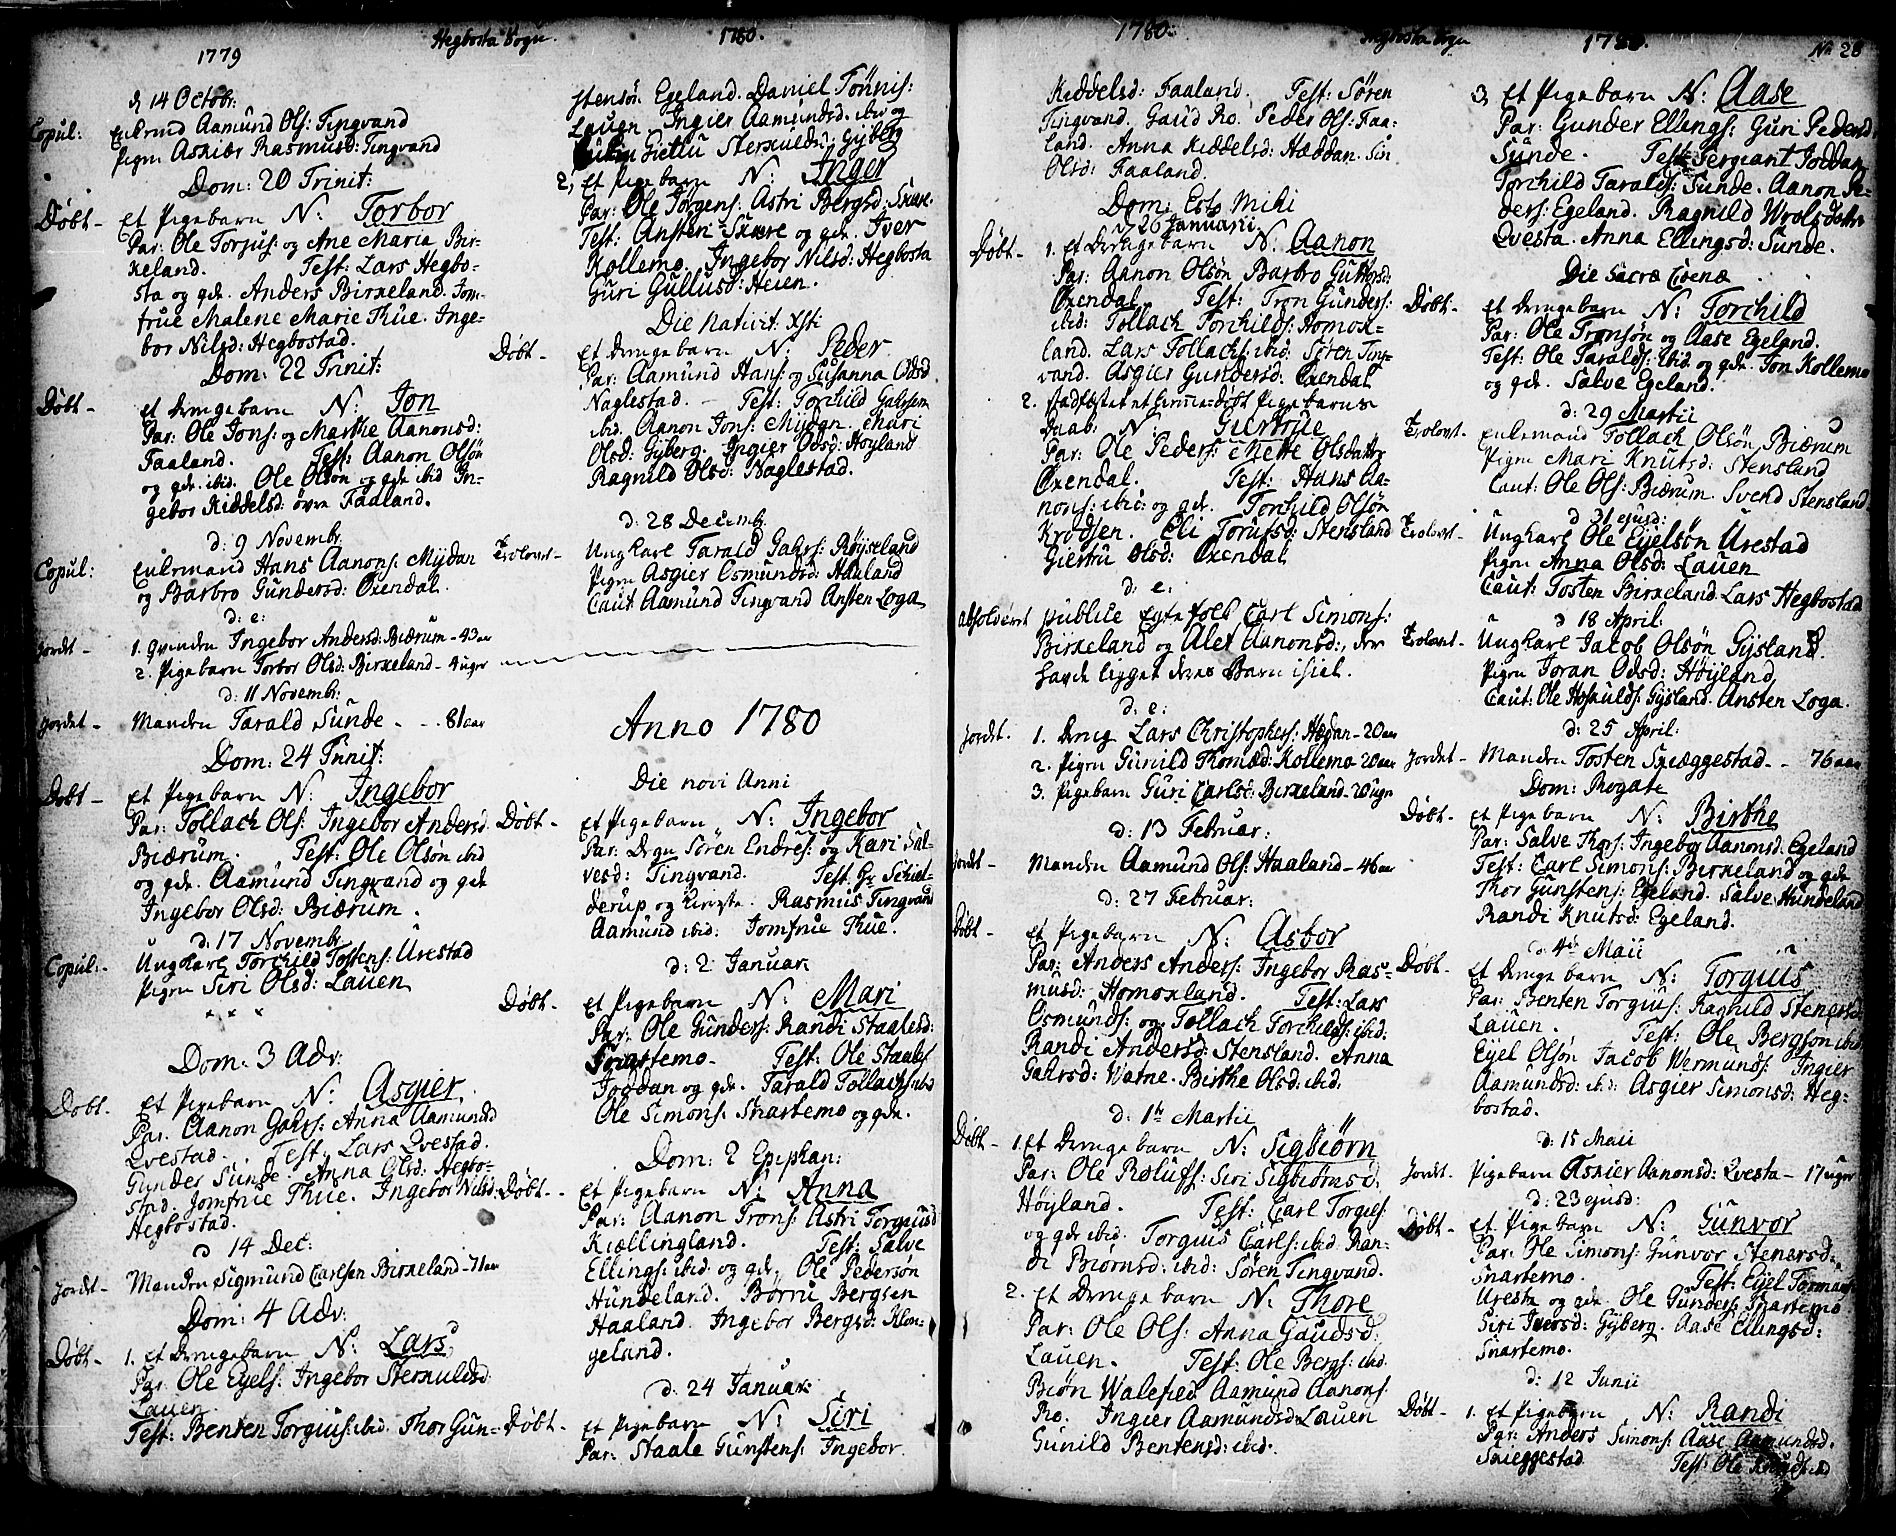 1779
Hegbosta Sogn
d 14 Octobr:
Copul: Enkemd Aamund Ols: Tingvand
Pigen Askier Rasmusd: Tingvand
Dom: 20 Trinit:
Døbt - et Pigebarn N: Torbor
Par: Ole Torjus: og Ane Maria Bir-
keland. Test: Lars Hegbo-
sta og qde. Anders Birkeland. Jom-
frue Malene Marie Thue. Inge-
bor Nilsd: Hegbostad.
Dom: 22 Trinit:
Døbt - et Drengebarn N: Jon
Par: Ole Jons: og Marthe Aanonsd:
Faaland. Test: Aanon Olsøn
og qde. ibid. Ole Olsøn og qde ibid In-
gebor Kiddelsd: øvre Faaland.
d: 9 Novembr
Copul: Enkemand Hans Aanons: Mydan
og Barbro Gundersd: Oxendal.
d: e:
Jordet - 1. Qvinden Ingebor Andersd: Biærum - 43 aar
2. Pigebarn Torbor Olsd: Birkeland - 4 uger
d: 11 Novembr:
Jordet - Manden Tarald Sunde - - 81 aar
Dom: 24 Trinit:
Døbt - et Pigebarn N: Ingebor
Par: Tollach Ols: Ingebor Andersd:
Biærum. Test: Ole Olsøn ibid
og qde. Aamund Tingvand og qde
Ingebor Olsd: Biærum.
d: 17 Novembr
Copul: - Ungkarl Torchild Tostens: Urestad
Pigen Siri Olsd: Lauen
Dom: 3 Adv:
Døbt. et Pigebarn N: Asgier
Par. Aanon Gahrs: Anna Aamundsd
Qvestad. Test: Lars Qvestad.
Gunder Sunde. Anna Olsd: Hegbo-
stad. Jomfrue Thue. Ingebor Nilsd:
Hegbostad.
d 14 Dec:
Jordet - Manden Sigmund Carlsen Birkeland - 71 aar
Dom: 4 Adv:
Døbt - 1. et Drengebarn N: Lars
Par Ole Eyels: Ingebor Sterkuldsd
Lauen.
Test: Benten Torgius: ibid. Thor Gun-
1780.
stensøn Egeland. Daniel Tønnis:
Lauen Ingier Aamundsd. ibid og
Gietlu Sterkuldsd: Gyberg
2, et Pigebarn N: Inger
Par: Ole Jørgens: Astri Bergsd: Skure.
Test: Ansten Skure og qde. Iver
Kollemo. Ingebor Nilsd: Hegbosta
Guri Gullusd: Heien.
Die Nativit: Xsti
Døbt - et Drengebarn N: Peder
Par: Aamund Hans: og Susanna Odsd
Naglestad. - Test: Torchild Gahrsøn
ibid. Aanon Jons: Mydgn. Mari
Olsd: Gyberg. Ingier Odsd: Høyland
Ragnild Olsd: Naglestad.
d: 28 Decembr
Trolovet - Ungkarl Tarald Gahrs: Røyseland
Pigen Asgier Osmundsd: Haaland
Caut. Aamund Tingvand Ansten Loga
Anno 1780
Die novi Anni
Døbt - et Pigebarn N: Ingebor
Par: Degn Søren Endres: og Kari Sal-
vesd: Tingvand. Test: Gr Schiel-
derup og Kieriste. Rasmus Tingvand
Aamund ibid: Jomfrue Thue.
d: 2 Januar:
Døbt - et Pigebarn N: Mari
Par: Ole Gunders: Randi Staalesd:
Snartemo - Test: Ole Staales
Troddan og qde. Tarald Tollachs: ibid
Ole Simons: Snartemo og qde.
Dom: 2 Epiphan:
Døbt - et Pigebarn N: Anna
Par: Aanon Trons: Astri Torgiusd
Kiællingland. Test: Salve
Ellings: ibid. og qde. Ole Pedersøn
Hundeland. Børru Bergsen
Haaland. Ingebor Bergsd: Klon-
geland.
d: 24 Januar:
Døbt - et Pigebarn N: Siri
Par: Staale Gunstens: Ingebor
1780:
Kiddelsd: Faaland. Test: Søren
Tingvand. Gaud Ro. Peder Ols: Faa-
land. Anna Kiddelsd: Hæddan. Siri
Olsd: Faaland.
Dom: Esto Mihi
d: 26 Januarii
Døbt - 1. et Drengebarn N: Aanon
Par: Aanon Olsøn Barbro Guttorsd:
Oxendal. Test: Tron Gunders:
ibid: Tollach Torchilds: Homox-
land. Lars Tollachs: ibid: Søren Ting-
vand. Asgier Gundersd: Oxendal
2. stadfæstet et hiemedøbt Pigebarns
Daab. N: Giertrue
Par: Ole Peders: Mette Olsdatter
Oxendal. Test: Hans Aa-
nons: ibid: og qde. Torchild Olsøn
Krodsen. Eli Torufsd: Stensland
Giertru Olsd: Oxendal
d: e:
absolveret publice Egtefolk Carl Simons:
Birkeland og Alet Aanonsd:, der
havde ligget deres Barn ihiel.
d: e:
Jordet. 1. Dreng Lars Christophers: Hædan - 20 aar
2. Pigen Gunild Thomæd: Kollemo 20 aar
3. Pigebarn Guri Carlsd: Birkeland - 20 uger
d: 13 Februar:
Jordet - Manden Aamund Ols: Haaland - 46 aar
d: 27 Februar:
Døbt - et Pigebarn N: Asbor
Par: Anders Anders: Ingebor Ras-
musd: Homoxland. Test: Lars
Osmunds: og Tollach Torchilds: ibid:
Randi Andersd: Stensland. Anna
Gahrsd: Watne. Birthe Olsd: ibid.
d: 1te Martii
Døbt - 1. et Drengebarn N: Sigbiørn
Par: Ole Rolufs: Siri Sigbiørnsd:
Høyland. Test: Carl Torgies:
og qde ibid. Torguis Carls: ibid Ran-
di Biørnsd: ibid: Søren Tingvand.
2. et Drengebarn N: Thore
Par: Ole Ols: Anna Gaudsd:
Lauen. Test: Ole Bergs: ibid.
Biøn Walefied. Aamund Aanons:
Ro. Ingier Aamundsd: Lauen
Gunild Bentensd: ibid.
Hegbosta Sogn
1780.
No 28
3, et Pigebarn N: Aase
Par: Gunder Ellings: Guri Pedersd
Sunde. Test: Sergeant Joddan
Torchild Taralds: Sunde. Aanon Pe-
ders: Egeland. Ragnild Wrolsdatter
Qvesta. Anna Ellingsd: Sunde.
Die Sacræ Coenæ
Døbt - et Drengebarn N: Torchild
Par: Ole Tronsøn og Aase Egeland.
Test: Ole Taralds: ibid. og qde. Jon Kollemo
og qde. Salve Egeland.
d: 29 Martii
Trolovt - Enkemand Tollach Olsøn Biærum
Pigen Mari Knutsd: Stensland
Caut: Ole Ols: Biærum. Svend Stensland
d 31 ejusd:
Trolovt - Ungkarl Ole Eyelsøn Urestad
Pigen Anna Olsd: Lauen
Caut: Tosten Birkeland. Lars Hegbostad
d 18 April
Trolovt - Ungkarl Jacob Olsøn Gysland.
Pigen Joran Odsd: Høyland
Caut: Ole Hoskulds: Gysland. Ansten Loga.
d: 25 April:
Jordet - Manden Tosten Skieggestad - - 76 aar
Dom: Rogate
Døbt - et Pigebarn N: Birthe
Par: Salve Thors: Ingebor Aanonsd: Egeland
Test: Carl Simons: Birkeland og qde
Thor Gunstens: Egeland. Salve Hundeland
Randi Knutsd: Egeland.
d. 4de Maii
Døbt. et Drengebarn N: Torgius
Par: Benten Torgius: Ragnild Stenersd
Lauen. Test: Ole Bergson ibid
Eyel Olsøn Jacob Wermunds: Ingier
Aamundsd: ibid. Asgier Simonsd: Heg-
bostad.
d: 15 Maii
Jordet. Pigebarn Askier Aanonsd: Qvesta - 17 uger
d: 23 ejusd:
Døbt - et Pigebarn N: Gunvor
Par: Ole Simons: Gunvor Stenersd:
Snartemo. Test: Eyel
Uresta og qde. Ole Gunders: Snartemo
Siri Iversd: Gyberg. Aase Ellingsd:
Snartemo.
d: 12 Junii
Døbt - 1. et Pigebarn N: Randi
Par: Anders Simons: Aase Aamundsd.
Skieggestad Test: Ole